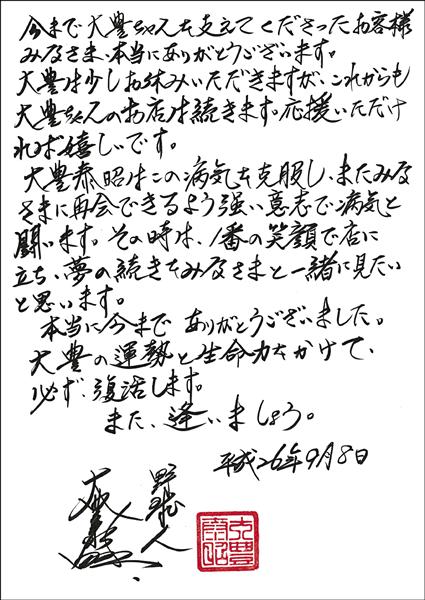 今まで大豊ちゃんを支えてくださったお客様
みなさま、本当にありがとうございます。
大豊は少しお休みいただきますが、これからも
大豊ちゃんのお店は続きます。応援いただけ
れば嬉しいです。
大豊泰昭はこの病気を克服し、またみな
さまに再会できるよう強い意志で病気と
闘います。その時は、1番の笑顔で店に
立ち、夢の続きをみなさまと一緒に見たい
と思います。
本当に今までありがとうございました。
大豊の運勢と生命力をかけて、
必ず、復活します。
また、逢いましょう。
平成26年9月8日
野球人
大豊泰昭